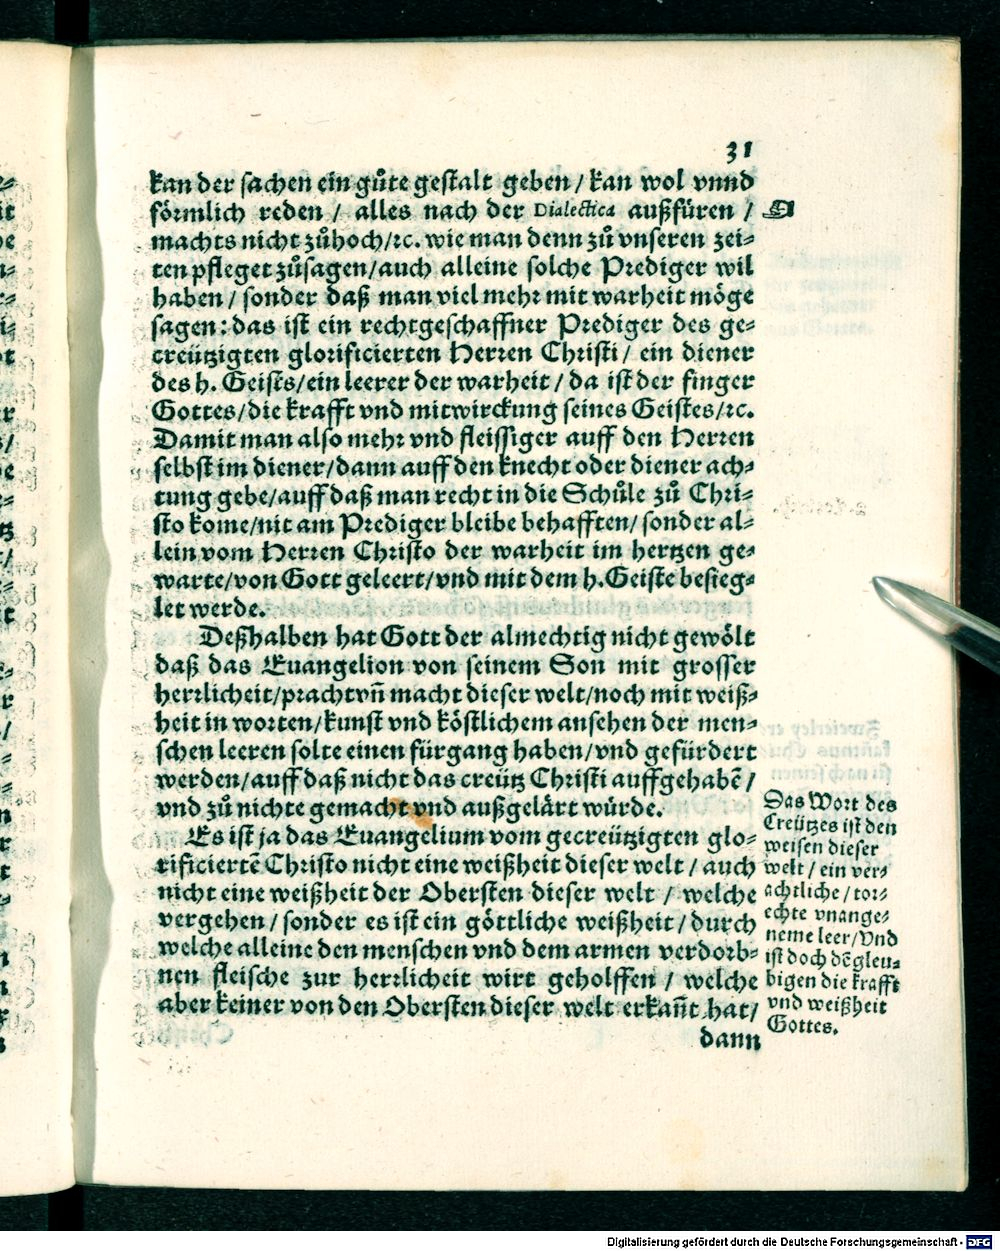 31
kan der sachen ein gůte gestalt geben / kan wol vnnd
förmlich reden / alles nach der Dialectica außfüren /
machts nicht zůhoch/ꝛc. wie man denn zů vnseren zei⸗
ten pfleget zůsagen/auch alleine solche Prediger wil
haben / sonder daß man viel mehr mit warheit möge
sagen: das ist ein rechtgeschaffner Prediger des ge⸗
creützigten glorificierten Herren Christi / ein diener
des h. Geists/ein leerer der warheit / da ist der finger
Gottes/die krafft vnd mitwirckung seines Geistes/ꝛc.
Damit man also mehr vnd fleissiger auff den Herren
selbst im diener/dann auff den knecht oder diener ach⸗
tung gebe/auff daß man recht in die Schůle zů Chri⸗
sto kome/nit am Prediger bleibe behafften/ sonder al⸗
lein vom Herren Christo der warheit im hertzen ge⸗
warte/von Gott geleert/vnd mit dem h.Geiste besieg⸗
let werde.
Deßhalben hat Gott der almechtig nicht gewölt
daß das Euangelion von seinem Son mit grosser
herrlicheit/pracht vñ macht dieser welt/noch mit weiß⸗
heit in worten/kunst vnd köstlichem ansehen der men⸗
schen leeren solte einen fürgang haben/vnd gefürdert
werden/auff daß nicht das creütz Christi auffgehabẽ /
vnd zů nichte gemacht vnd außgelärt würde.
Es ist ja das Euangelium vom gecreützigten glo⸗
rificiertẽ Christo nicht eine weißheit dieser welt / auch
nicht eine weißheit der Obersten dieser welt / welche
vergehen / sonder es ist ein göttliche weißheit / durch
welche alleine den menschen vnd dem armen verdorb⸗
nen fleische zur herrlicheit wirt geholffen / welche
aber keiner von den Obersten dieser welt erkañt hat/
dann
Das Wort des
Creützes ist den
weisen dieser
welt / ein ver⸗
achtliche / tor⸗
echte vnange⸗
neme leer/Vnd
ist doch dẽ gleu⸗
bigen die krafft
vnd weißheit
Gottes.
Digitalisierung gefördert durch die Deutsche Forschungsgemeinschaft - DFG